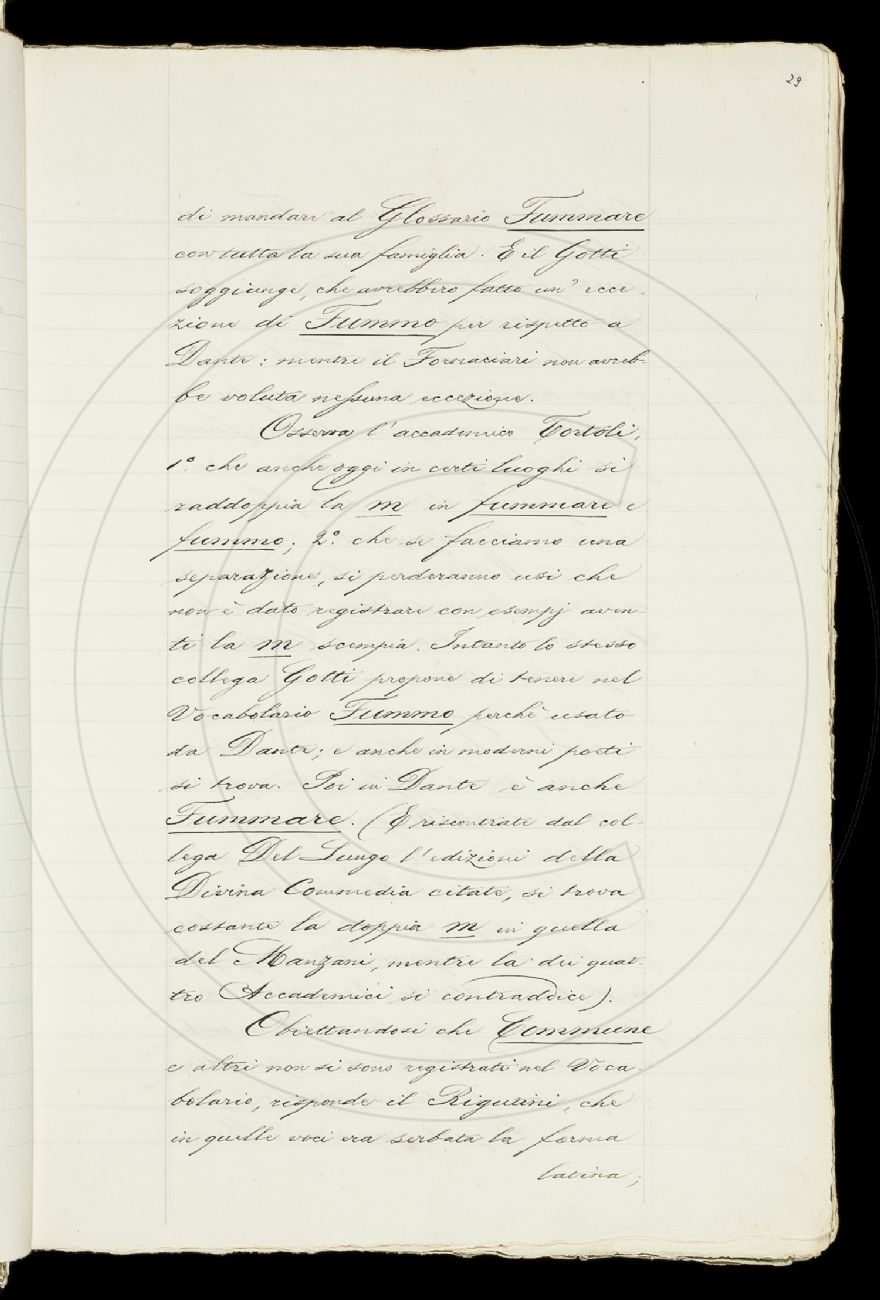 29
di mandare al Glossario Fummare
con tutta la sua famiglia. E il Gotti
soggiunge, che avrebbero fatto un' ecce-
zione di Fummo per rispetto a
Dante: mentre il Fornaciari non avreb-
be voluta nessuna eccezione.
Osserva l'accademico Tortoli,
1º. che anche oggi in certi luoghi si
raddoppia la m in fummare e
fummo; 2º. che se facciamo una
separazione, si perderanno usi che
non è dato registrare con esempj aven-
ti la m scempia. Intanto lo stesso
collega Gotti propone di tenere nel
Vocabolario Fummo perchè usato
da Dante; e anche in moderni poeti
si trova. Poi in Dante è anche
Fummare. (E riscontrate dal col-
lega Del Lungo l'edizioni della
Divina Commedia citate, si trova
costante la doppia m in quella
del Manzani, mentre la dei quat-
tro Accademici si contraddice).
Obiettandosi che Commune
e altri non si sono registrati nel Voca-
bolario, risponde il Rigutini, che
in quelle voci era serbata la forma
latina;